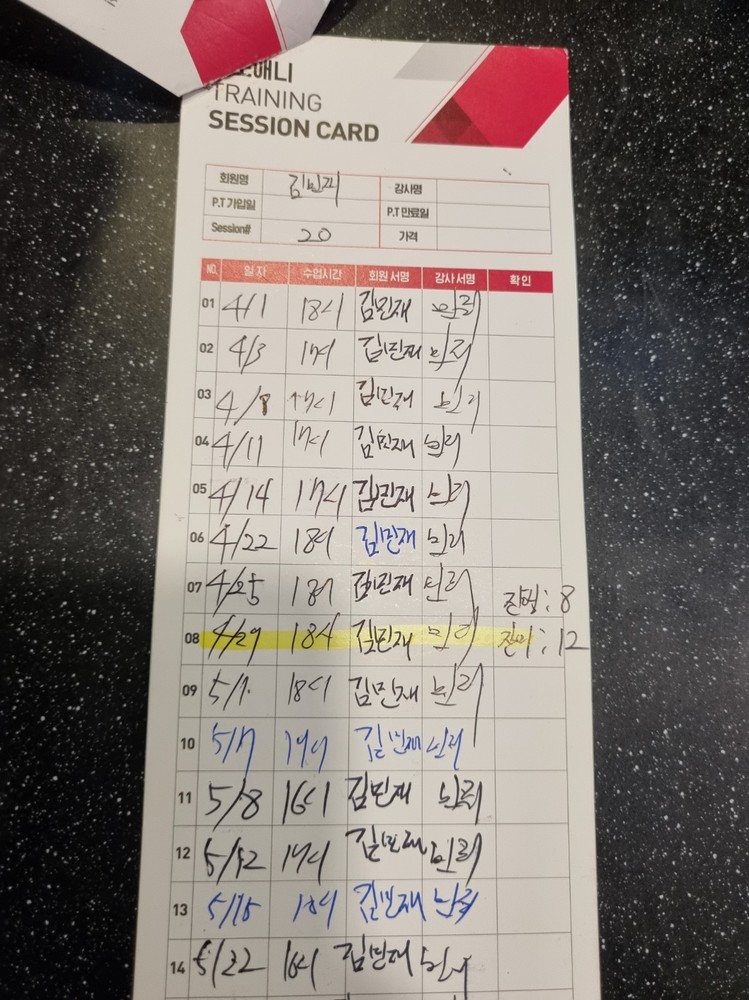 TRAINING
SESSION CARD
회원명 김민재 강사명
P.T 가입일 P.T 만료일
Session# 20 가격
NO. 일 자 수업시간 회원 서명 강사 서명 확 인
01 4/1 18시 김민재
02 4/3 17시 김민재
03 4/8 17시 김민재
04 4/11 17시 김민재
05 4/14 17시 김민재
06 4/22 18시 김민재
07 4/25 18시 김민재
진행: 8
08 4/29 18시 김민재
잔여: 12
09 5/1 18시 김민재
10 5/7 17시 김민재
11 5/8 16시 김민재
12 5/12 17시 김민재
13 5/15 18시 김민재
14 5/22 16시 김민재